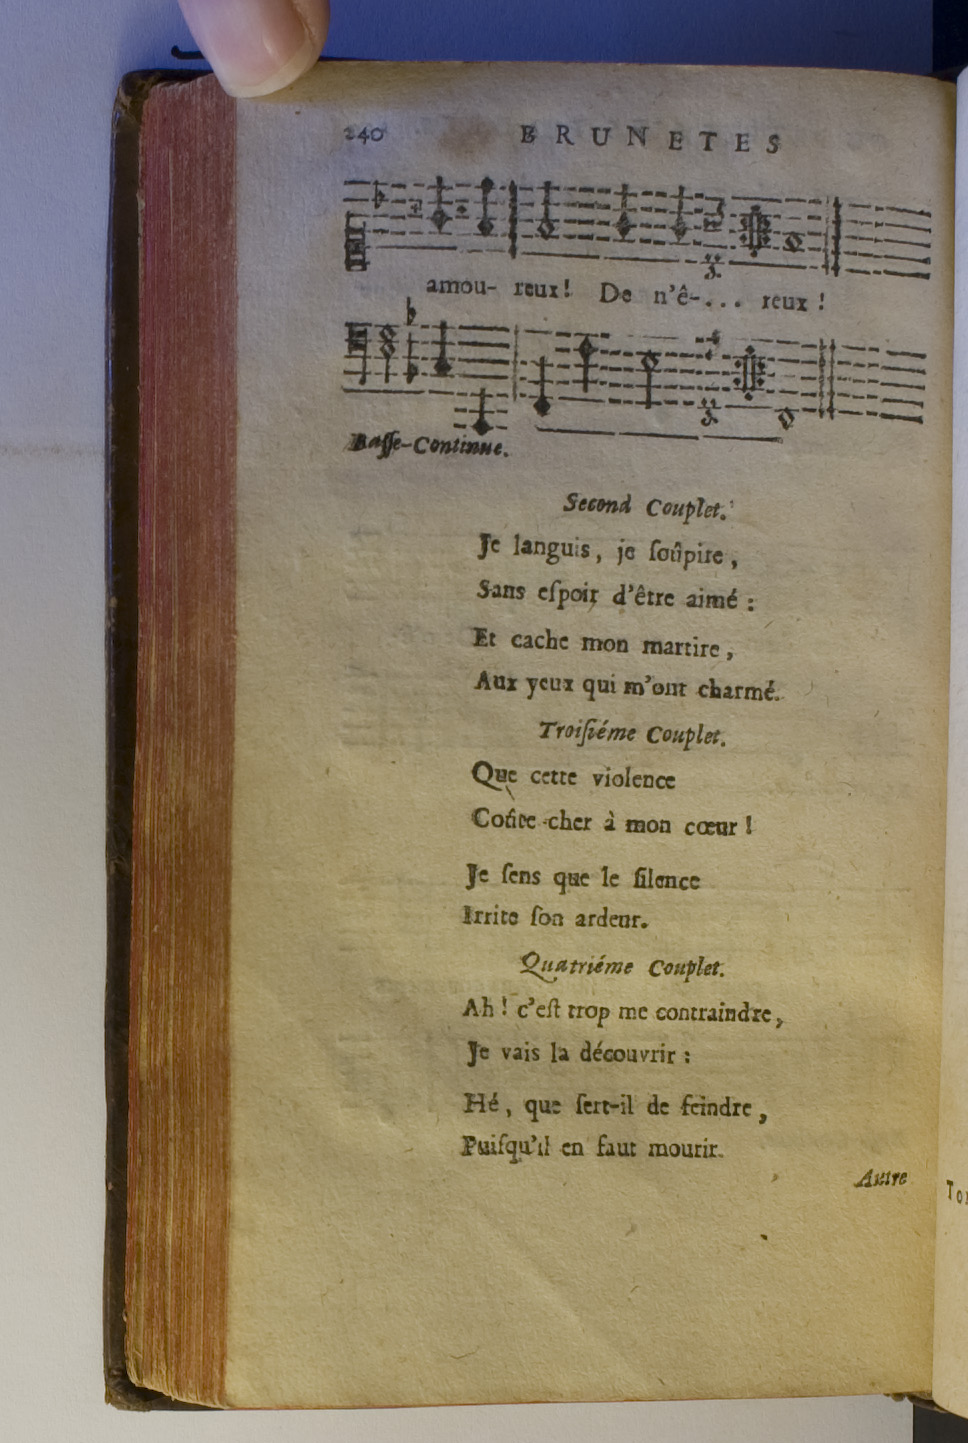 240 BRUNETES
amou- reux! De n'ê-... reux!
Baſſe-Continue.
Second Couplet.
Je languis, je ſoûpire,
Sans eſpoir d'être aimé:
Et cache mon martire,
Aux yeux qui m'ont charmé.
Troiſiéme Couplet.
Que cette violence
Coûte cher à mon cœur!
Je ſens que le ſilence
Irrite ſon ardeur.
Quatriéme Couplet.
Ah! c'eſt trop me contraindre,
Je vais la découvrir:
Hé, que ſert-il de feindre,
Puiſqu'il en faut mourir.
Autre